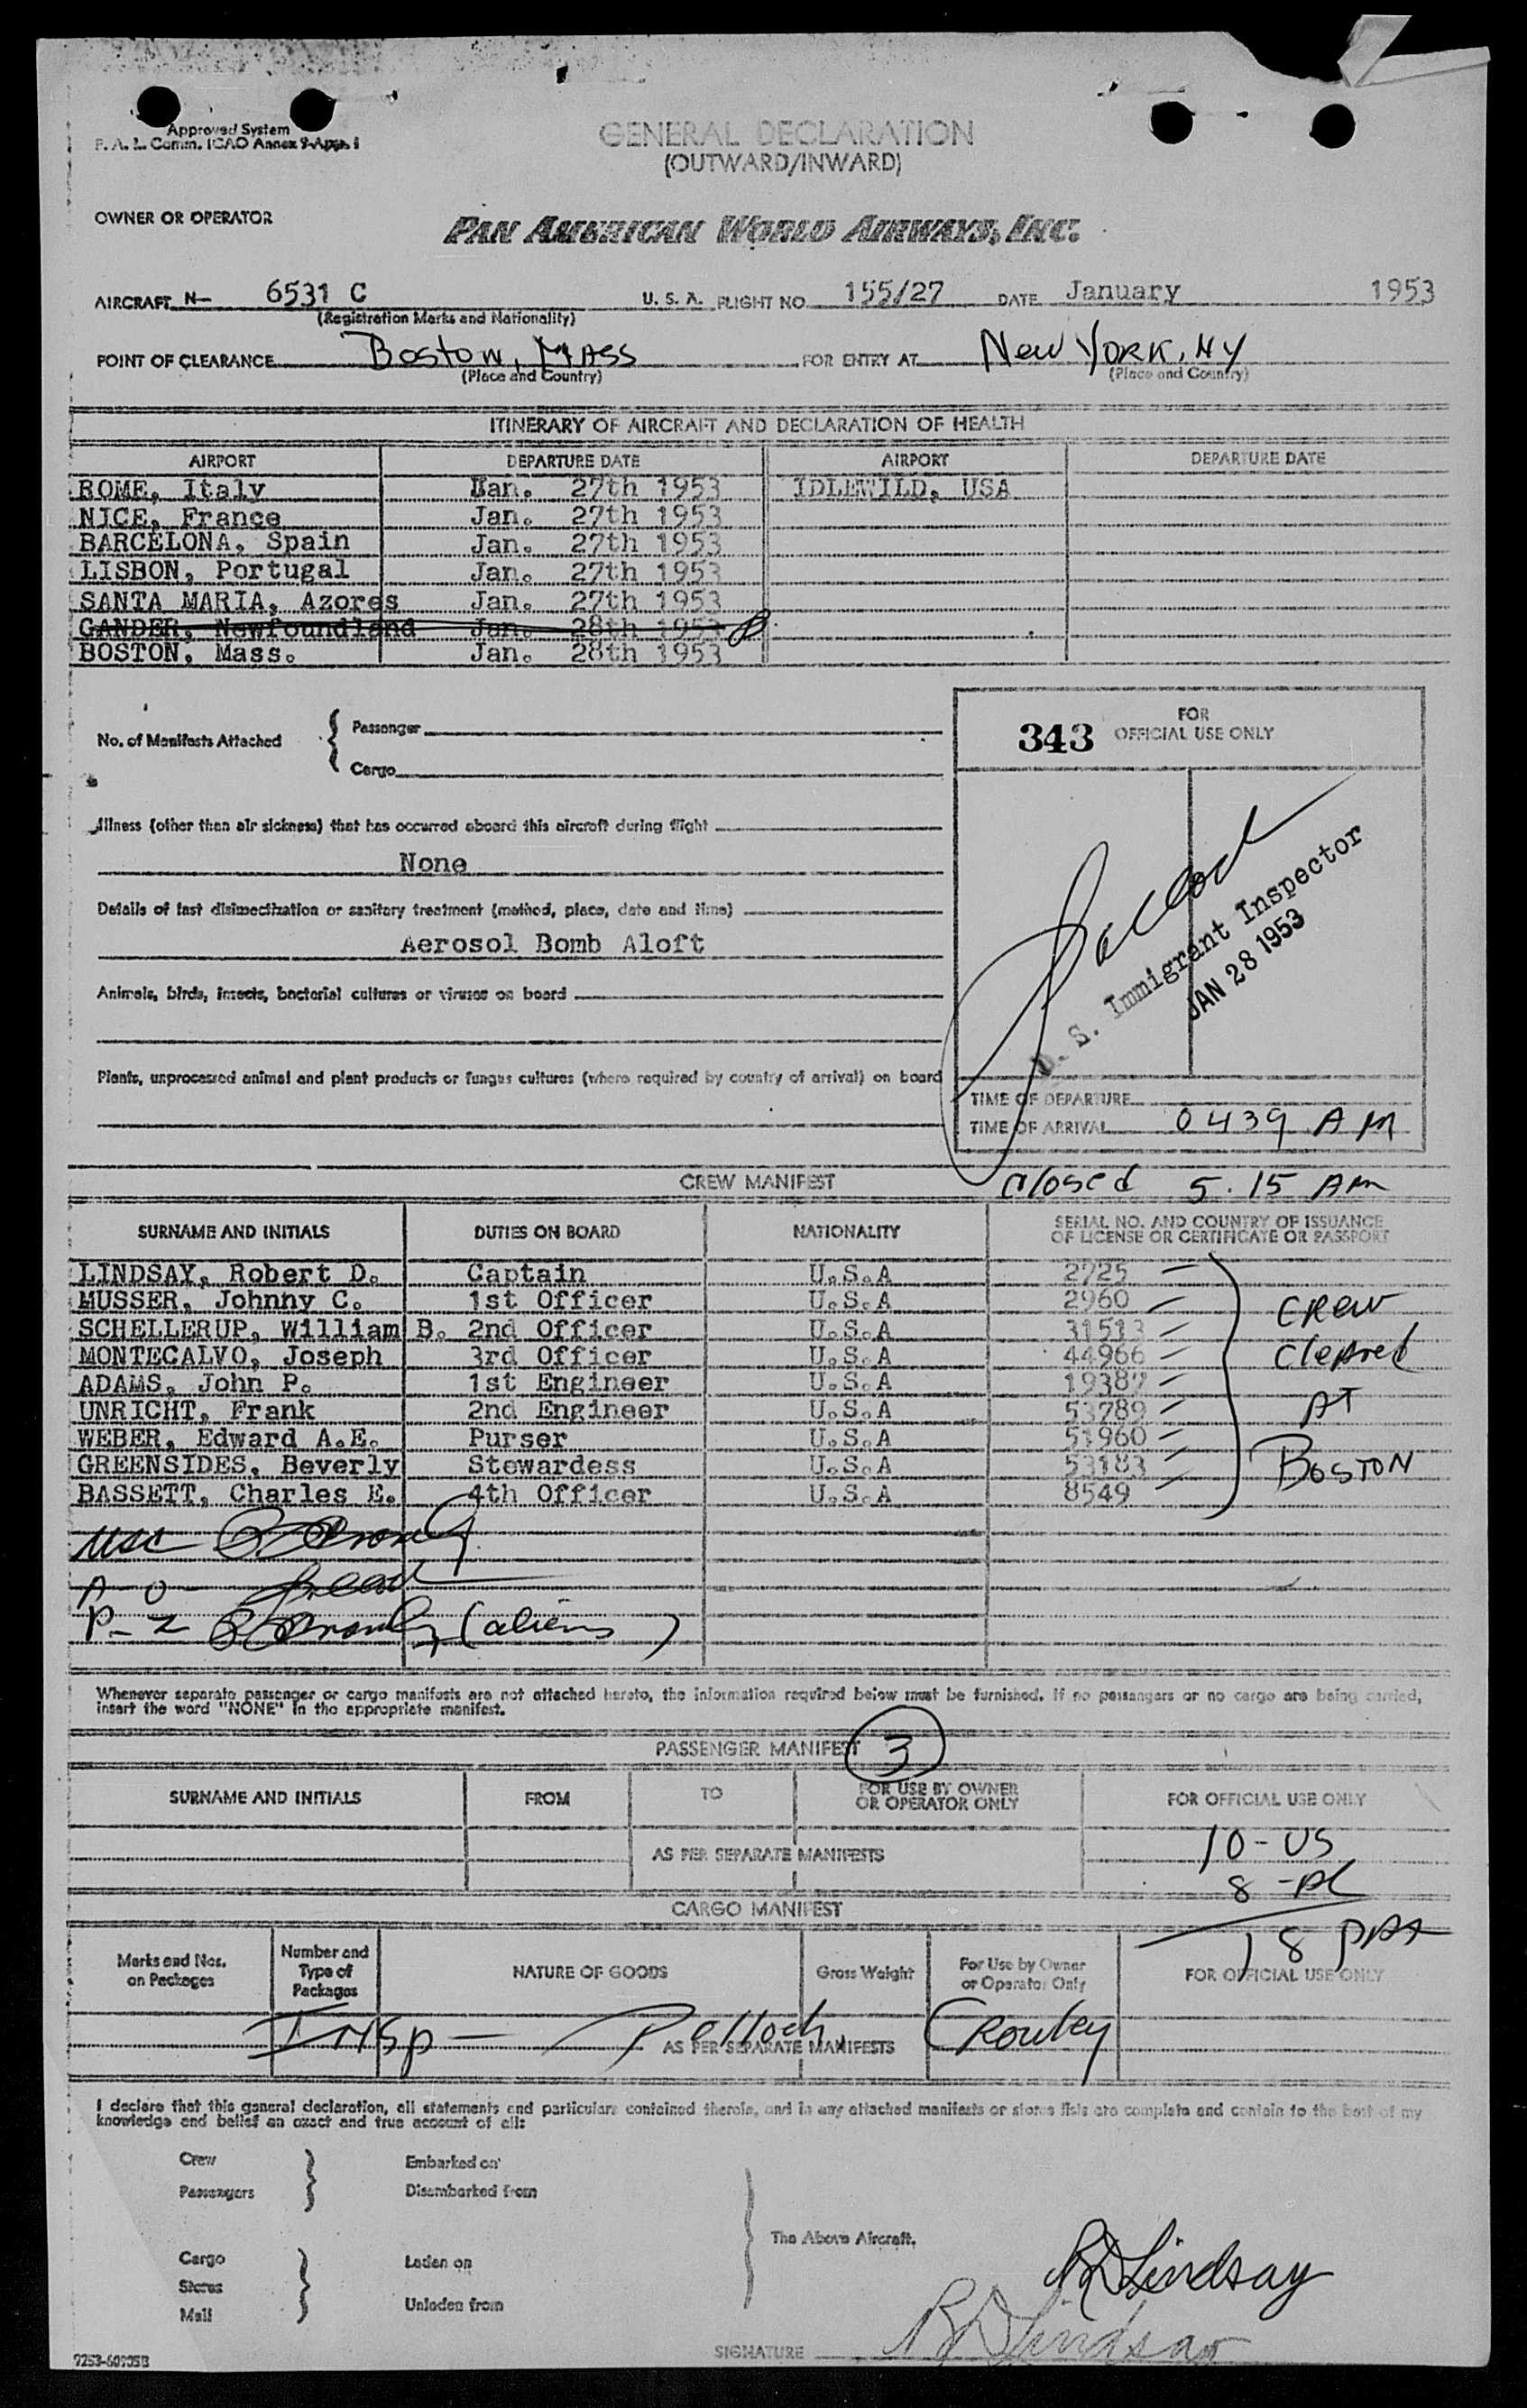 Approved System
F. A. L. Comm. ICAO Annex 9-Appx 1
GENERAL DECLARATION
(OUTWARD/INWARD)
OWNER OR OPERATOR
PAN AMERICAN WORLD AIRWAYS, INC.
AIRCRAFT N- 6531 C U. S. A. FLIGHT NO. 155/27 DATE January 1953
(Registration Marks and Nationality)
POINT OF CLEARANCE Boston, MASS FOR ENTRY AT New YORK, NY
(Place and Country) (Place and Country)
ITINERARY OF AIRCRAFT AND DECLARATION OF HEALTH
AIRPORT DEPARTURE DATE AIRPORT DEPARTURE DATE
ROME, Italy Jan. 27th 1953 IDLEWILD, USA
NICE, France Jan. 27th 1953
BARCELONA, Spain Jan. 27th 1953
LISBON, Portugal Jan. 27th 1953
SANTA MARIA, Azores Jan. 27th 1953
GANDER, Newfoundland Jan. 28th 1953
BOSTON, Mass. Jan. 28th 1953
No. of Manifests Attached
Passenger
Cargo
343 FOR OFFICIAL USE ONLY
Illness (other than air sickness) that has occurred aboard this aircraft during flight
None
Details of last disinsectization or sanitary treatment (method, place, date and time)
Aerosol Bomb Aloft
Animals, birds, insects, bacterial cultures or viruses on board
Plants, unprocessed animal and plant products or fungus cultures (where required by country of arrival) on board
U. S. Immigrant Inspector
JAN 28 1953
TIME OF DEPARTURE
TIME OF ARRIVAL 0439 AM
CREW MANIFEST closed 5.15 AM
SURNAME AND INITIALS DUTIES ON BOARD NATIONALITY SERIAL NO. AND COUNTRY OF ISSUANCE OF LICENSE OR CERTIFICATE OR PASSPORT
LINDSAY, Robert D. Captain U.S.A 2725
MUSSER, Johnny C. 1st Officer U.S.A 2960
SCHELLERUP, William B. 2nd Officer U.S.A 31513
MONTECALVO, Joseph 3rd Officer U.S.A 44966
ADAMS, John P. 1st Engineer U.S.A 19387
UNRICHT, Frank 2nd Engineer U.S.A 53789
WEBER, Edward A.E. Purser U.S.A 51960
GREENSIDES, Beverly Stewardess U.S.A 53183
BASSETT, Charles E. 4th Officer U.S.A 8549
CREW
Cleared
AT
BOSTON
USC
A - 0
P - 2 (aliens)
Whenever separate passenger or cargo manifests are not attached hereto, the information required below must be furnished. If no passengers or no cargo are being carried,
insert the word "NONE" in the appropriate manifest.
PASSENGER MANIFEST 3
SURNAME AND INITIALS FROM TO FOR USE BY OWNER OR OPERATOR ONLY FOR OFFICIAL USE ONLY
AS PER SEPARATE MANIFESTS
10 - US
8 - AL
18 PAX
CARGO MANIFEST
Marks and Nos. on Packages Number and Type of Packages NATURE OF GOODS Gross Weight For Use by Owner or Operator Only FOR OFFICIAL USE ONLY
INSp - Pollock, Crowley
AS PER SEPARATE MANIFESTS
I declare that this general declaration, all statements and particulars contained therein, and in any attached manifests or stores lists are complete and contain to the best of my
knowledge and belief an exact and true account of all:
Crew
Passengers
Embarked on
Disembarked from
The Above Aircraft.
Cargo
Stores
Mail
Laden on
Unladen from
RD Lindsay
SIGNATURE RD Lindsay
9253-60905B